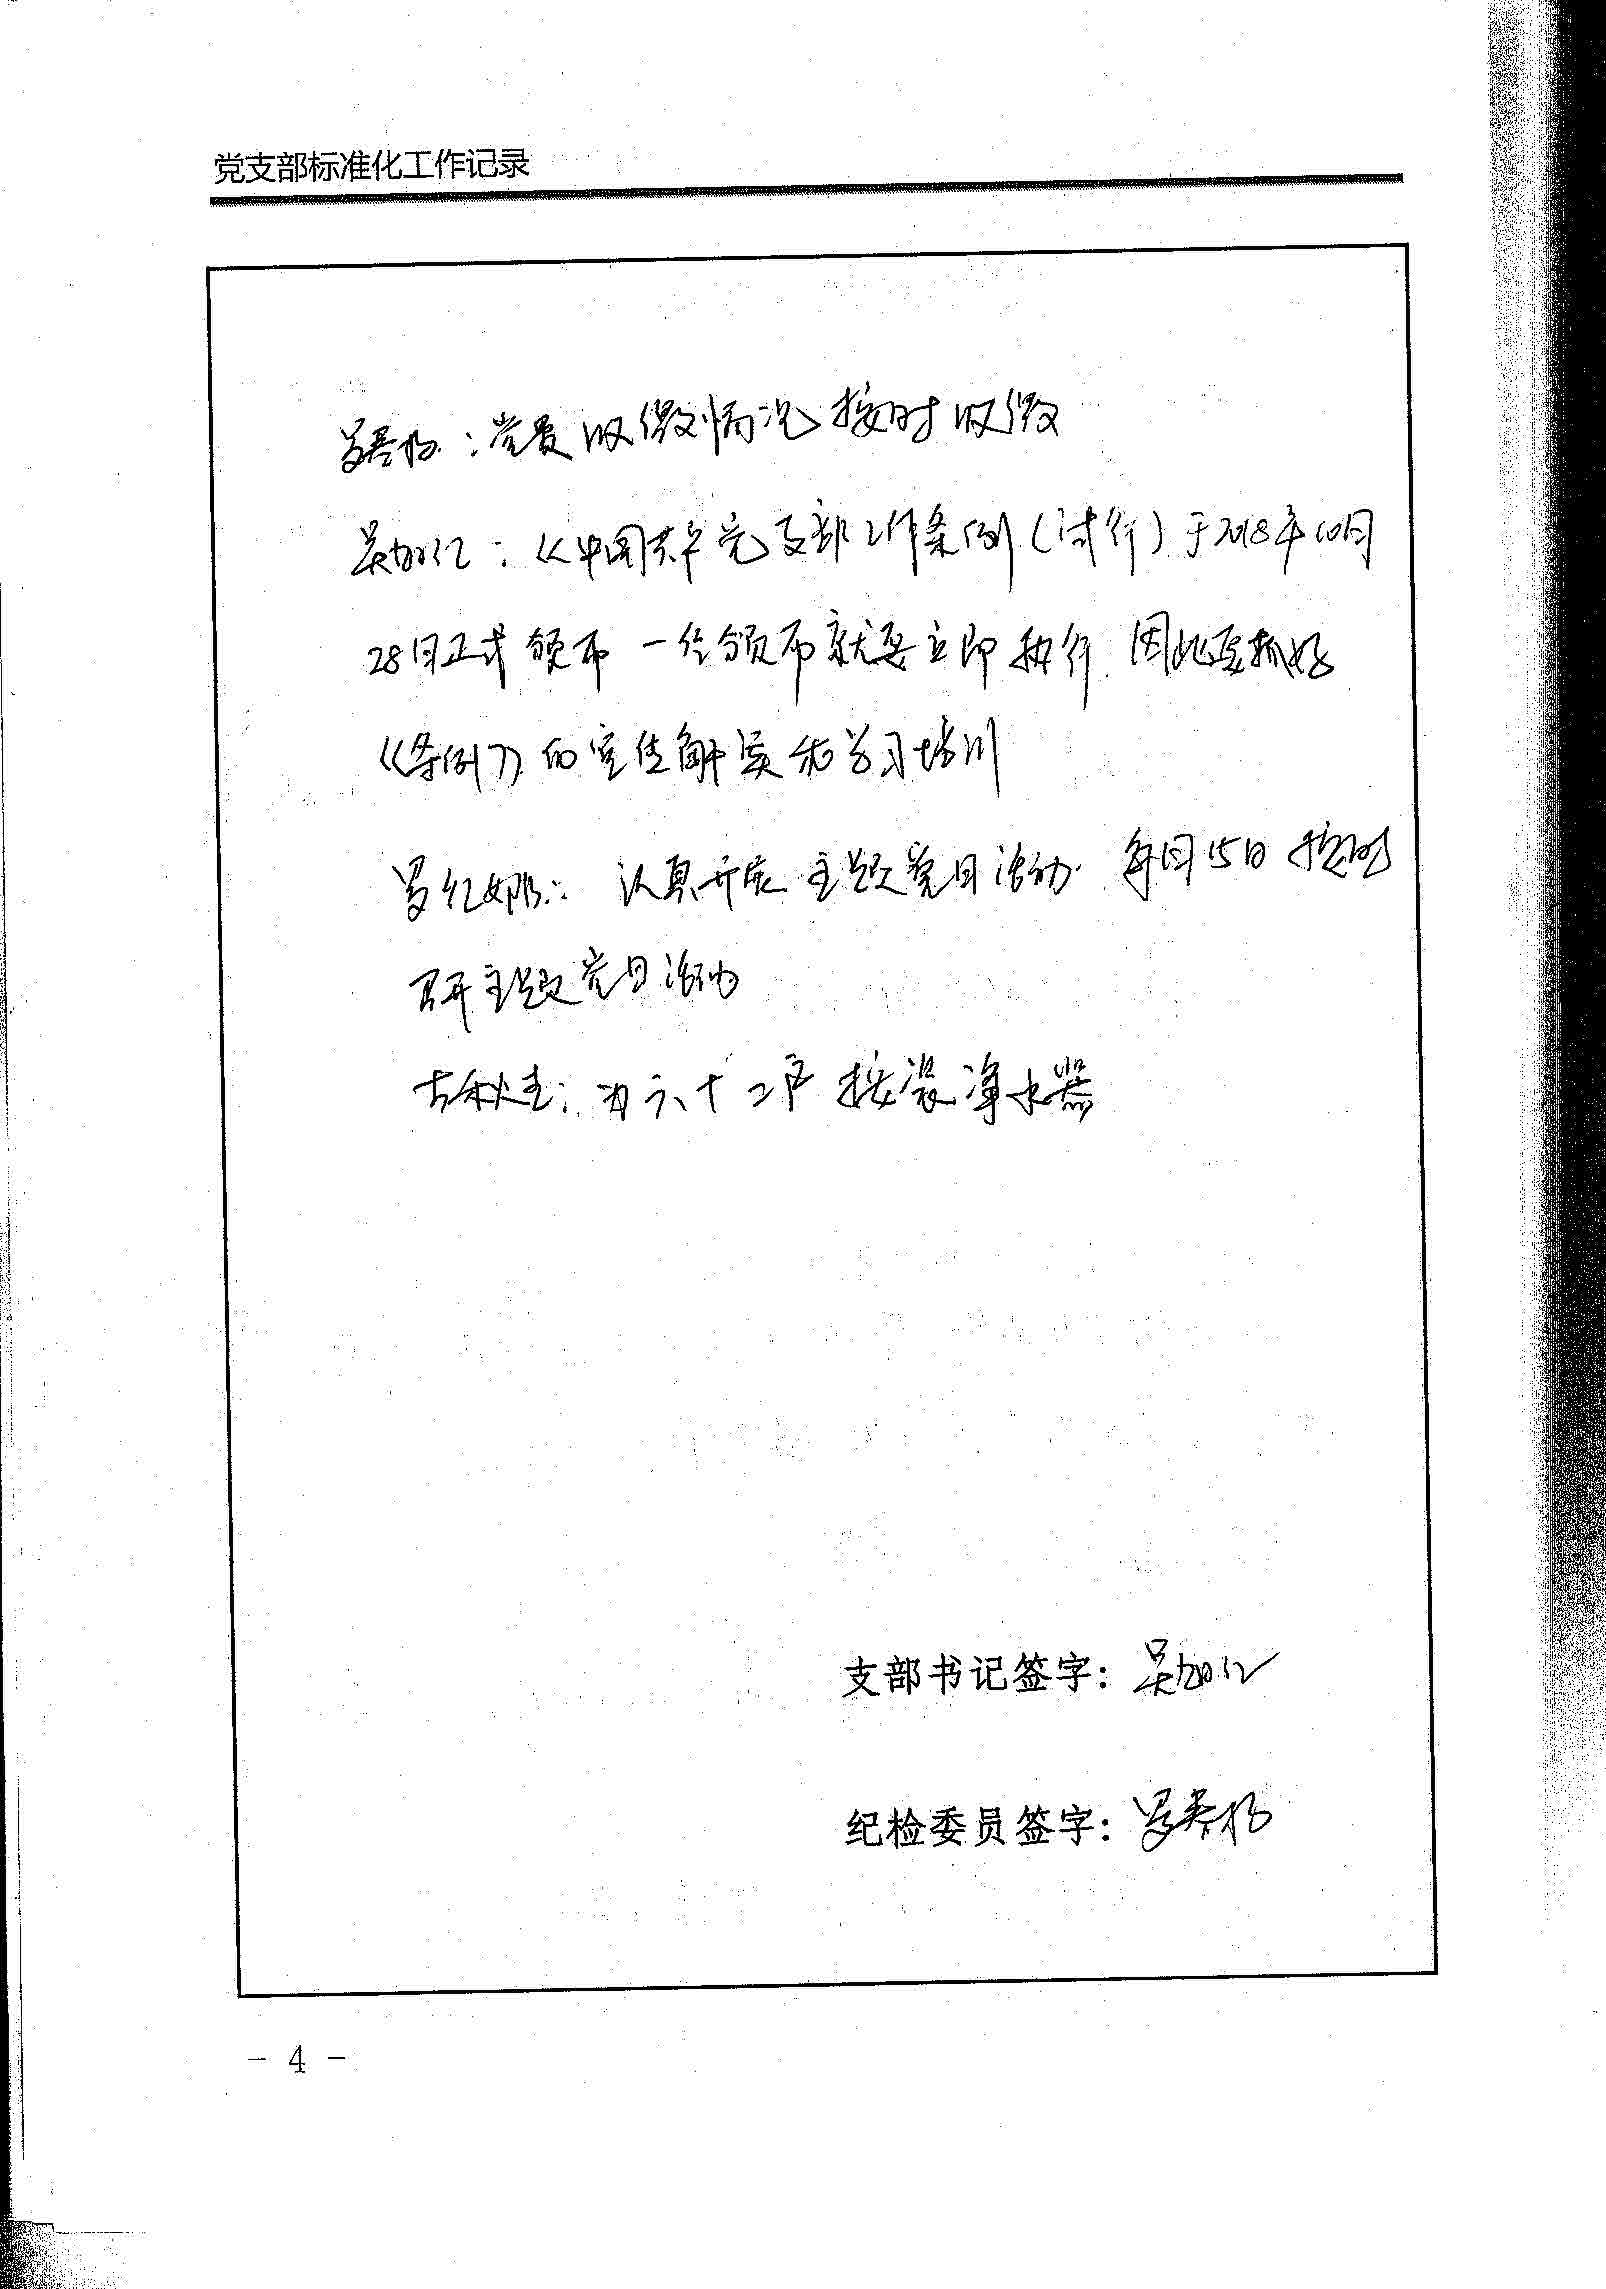 党支部标准化工作记录
：党费收缴情况按时收缴
吴加江：《中国共产党支部工作条例（试行）于2018年10月
28日正式颁布 一经颁布就要立即执行 因此要抓好
《条例》的宣传解读和学习培训
罗红娜：认真开展主题党日活动 每月15日按时
召开主题党日活动
古秋生：为六十二户 按装净水器
支部书记签字：吴加江
纪检委员签字：
- 4 -